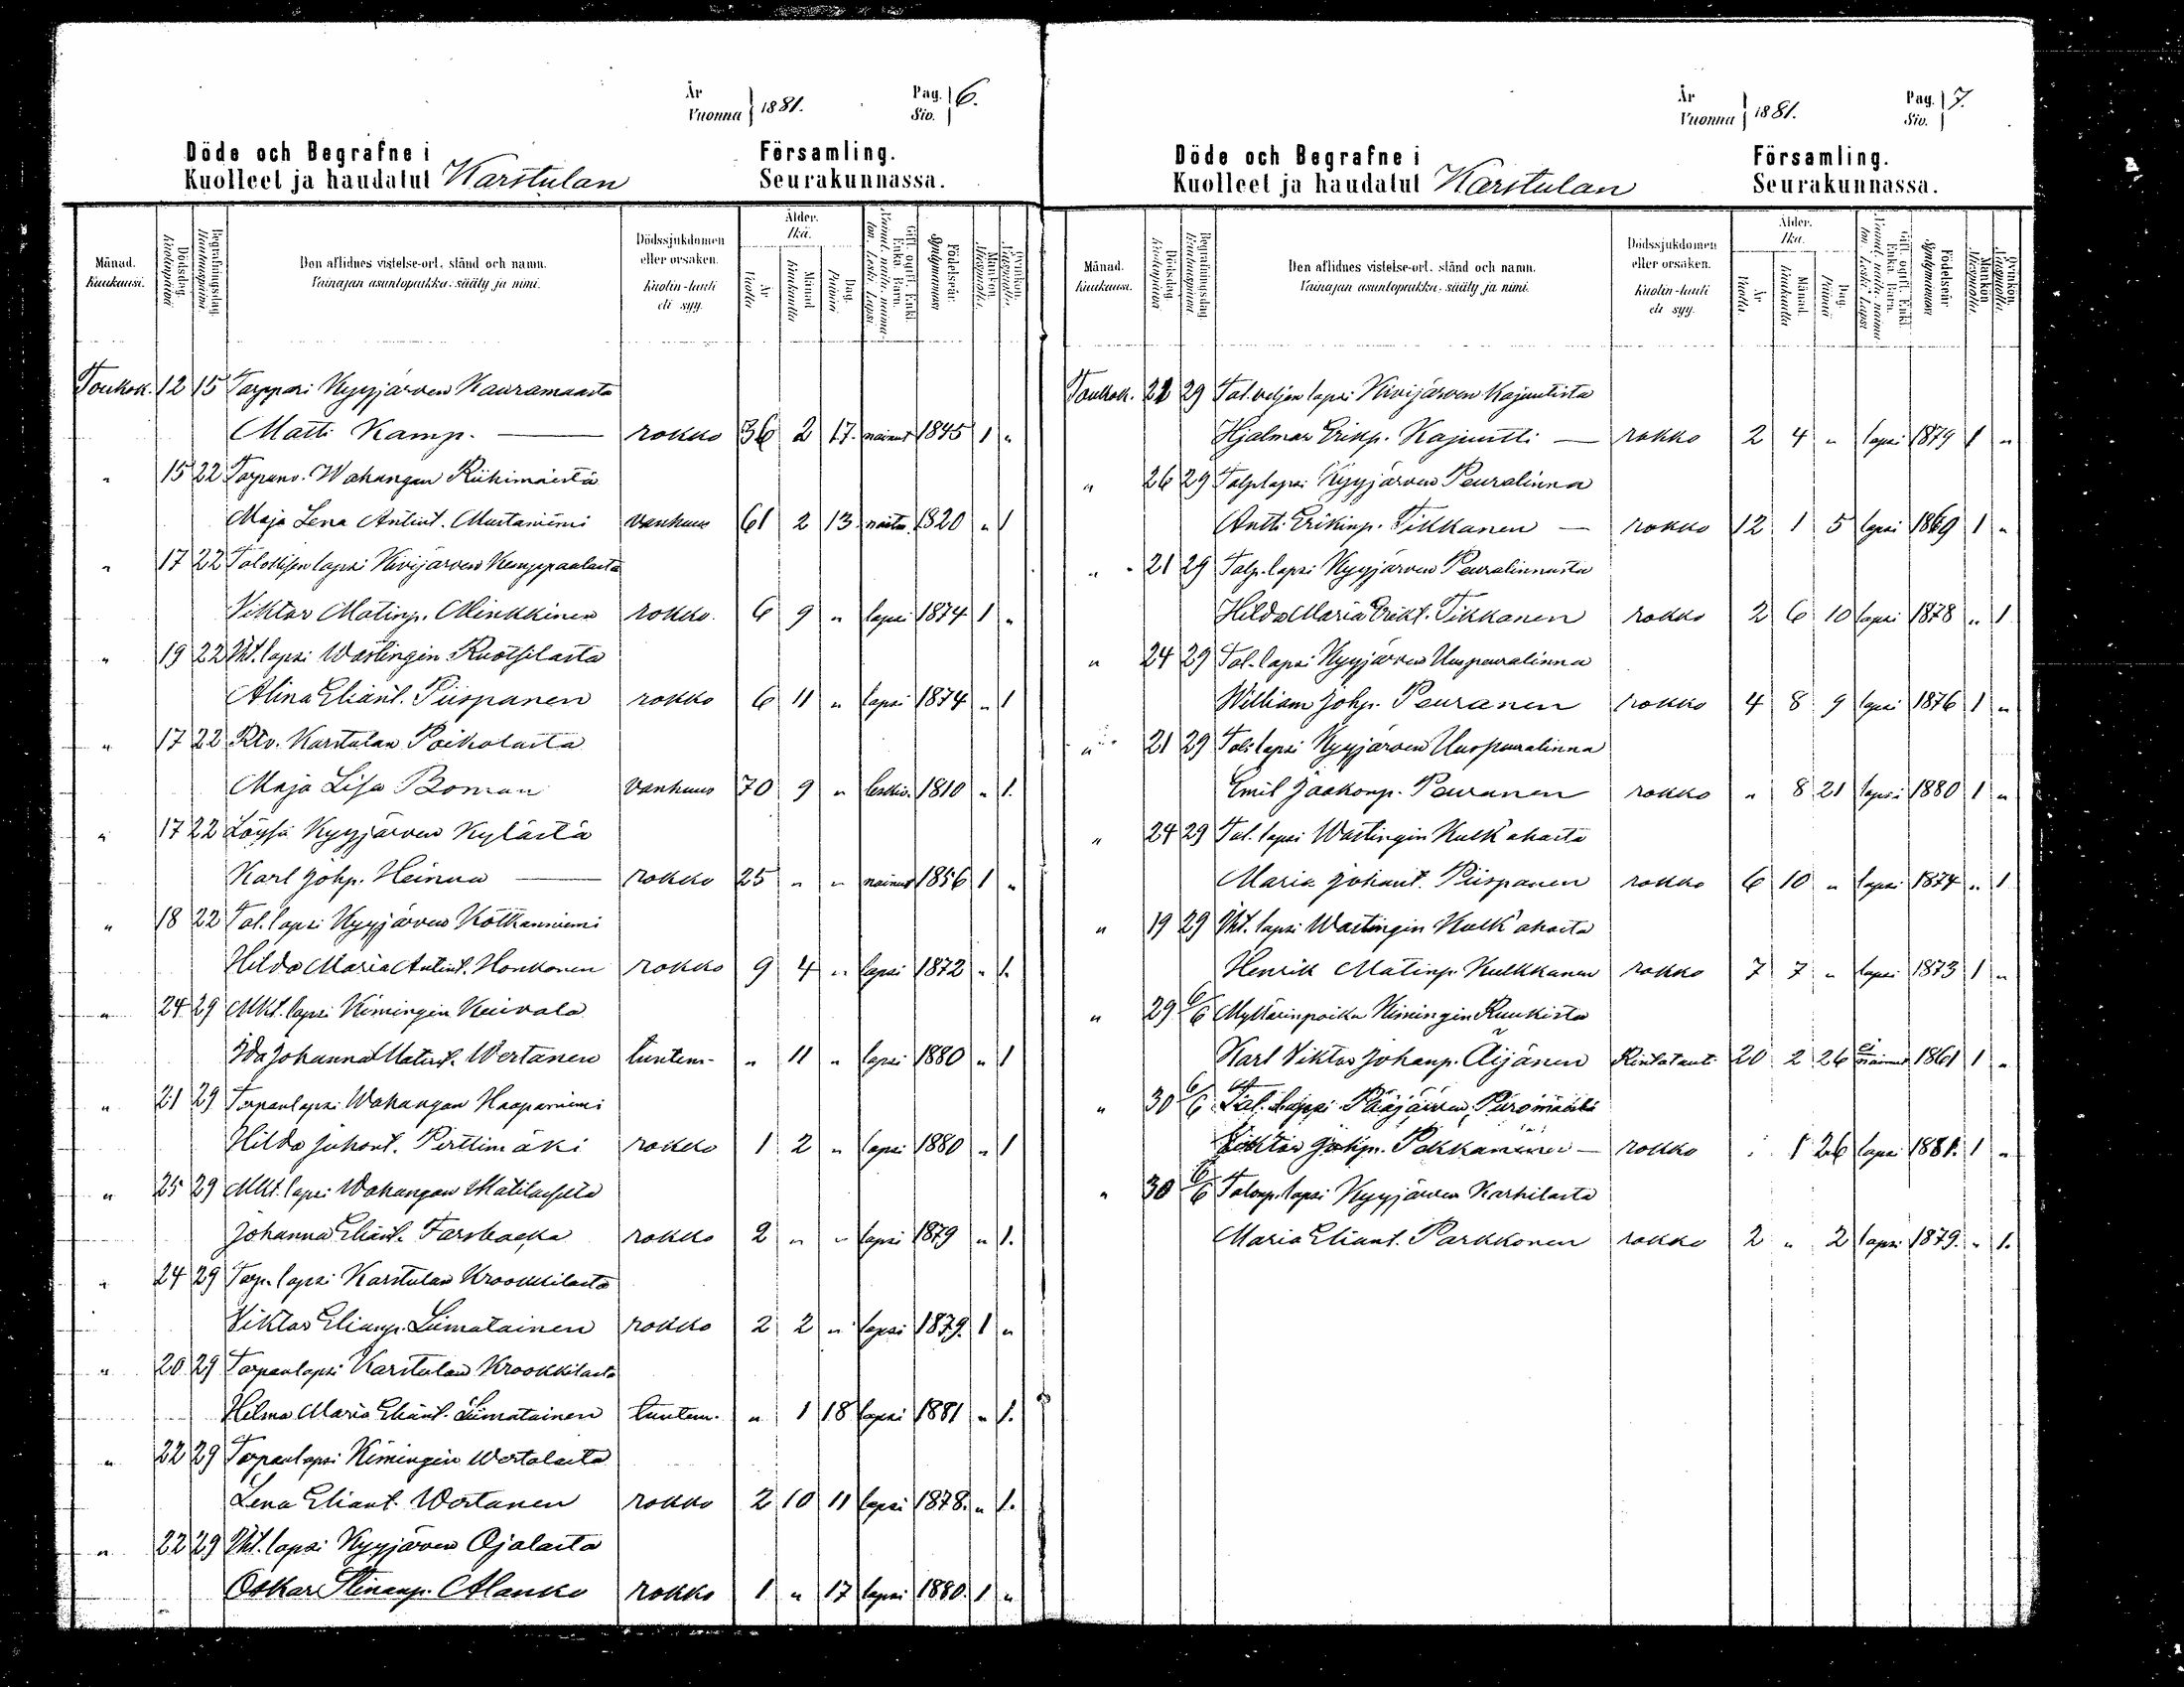 År
Vuonna 1881.
Pag. Siv. 6.
Döde och Begrafne i Församling.
Kuolleet ja haudatut Karstulan Seurakunnassa.
Månad. Kuukausi.
Dödsdag. Kuolinpäivä
Begrafningsdag. Hautauspäivä
Den aflidnes vistelse-ort, stånd och namn.
Vainajan asuntopaikka, sääty ja nimi.
Dödssjukdomen eller orsaken.
Kuolin-tauti eli syy.
Ålder. Ikä.
År Vuotta
Månad. Kuukautta
Dag. Päivää
Födelseår. Syntymävuosi
Mankön. Miespuolia.
Qvinkön.
Toukok. 12 15 Torppari Kyyjärven Kauramaasta
Matti Kamp. — rokko 36 2 17. nainut 1845 1 "
" 15 22 Torpanv. Wahangan Riihimäestä
Maja Lena Antint. Mustaniemi vanhuus 61 2 13 1820 " 1
" 17 22 lapsi Kivijärven Kemppaalasta
Viktor Matinp. Minkkinen rokko. 6 9 " lapsi 1874 1 "
" 19 22 lapsi Wastingin Ruotsilasta
Alina Eliant. Piispanen rokko 6 11 " lapsi 1874 " 1
" 17 22 Rtv. Karstulan Poikolasta
Maja Lisa Boman vanhuus 70 9 " 1810 " 1.
" 17 22 Löysä Kyyjärven Kylästä
Karl Johp. Heinua — rokko 25 " " nainut 1856 1 "
" 18 22 Tal. lapsi Kyyjärven Kötkänniemi
Hilda Maria Antint. Honkonen rokko 9 4 " lapsi 1872 " 1.
" 24 29 Mkt. lapsi Kimingin Keivala
Ida Johanna Matint. Wertanen tuntem. " 11 " lapsi 1880 " 1
" 21 29 Torpanlapsi Wahangan Haapaniemi
Hilda Juhont. Perttimäki rokko 1 2 " lapsi 1880 " 1
" 25 29 Mkt. lapsi Wahangan
Johanna Eliant. Farsbacka rokko 2 " " lapsi 1879 " 1.
" 24 29 Torp. lapsi Karstulan Krookkilasta
Viktor Elianp. Liimatainen rokko 2 2 " lapsi 1879. 1 "
" 20 29 Torpanlapsi Karstulan Krookkilasta
Hilma Maria Eliant. Liimatainen tuntem. " 1 18 lapsi 1881 " 1.
" 22 29 Torpanlapsi Kimingin Wertalasta
Lena Eliant. Wertanen rokko 2 10 11 lapsi 1878. " 1.
" 22 29 lapsi Kyyjärven Ojalasta
Oskar Stinanp. Alanko rokko 1 " 17 lapsi 1880. 1 "
År
Vuonna 1881.
Pag. Siv. 7.
Döde och Begrafne i Församling.
Kuolleet ja haudatut Karstulan Seurakunnassa.
Månad. Kuukausi.
Dödsdag Kuolinpäivä
Begrafningsdag Hautauspäivä
Den aflidnes vistelse-ort, stånd och namn.
Vainajan asuntopaikka, sääty ja nimi.
Dödssjukdomen eller orsaken.
Kuolin-tauti eli syy.
Ålder. Ikä.
År Vuotta
Månad. Kuukautta
Dag. Päivää
Födelseår. Syntymävuosi
Mankön. Miespuolia
Qvinkön.
Toukok. 21 29 Tal. veljen lapsi Kivijärven Kajuutista
Hjalmar Erikp. Kajuutti — rokko 2 4 " lapsi 1879 1 "
" 26 29 Talp lapsi Kyyjärven Peuralinna
Antti Erikinp. Tikkanen — rokko 12 1 5 lapsi 1869 1 "
" 21 29 Talp. lapsi Kyyjärven Peuralinnasta
Hilda Maria Erikt. Tikkanen rokko 2 6 10 lapsi 1878 " 1
" 24 29 Tal. lapsi Kyyjärven Uuspeuralinna
William Johp. Peuranen rokko 4 8 9 lapsi 1876 1 "
" 21 29 Tal. lapsi Kyyjärven Uuspeuralinna
Emil Jaakonp. Peuranen rokko " 8 21 lapsi 1880 1 "
" 24 29 Tal. lapsi Wastingin Kulk'ahasta
Maria Johant. Piispanen rokko 6 10 " lapsi 1874 " 1
" 19 29 lapsi Wastingin Kulk'ahasta
Henrik Matinp. Kulkkanen rokko 7 7 " lapsi 1873 1 "
" 29 6/6 Myllärinpoika Kimingin Ruukista
Karl Viktor Johanp. Äijänen Rintataut. 20 2 26 ei nainut 1861 1 "
" 30 6/6 Pääjärven
Viktor Johp. — rokko 1 26 lapsi 1881. 1 "
" 30 6/6 Talonp. lapsi Kyyjärven Karhilasta
Maria Eliant. Parkkonen rokko 2 " 2 lapsi 1879. " 1.